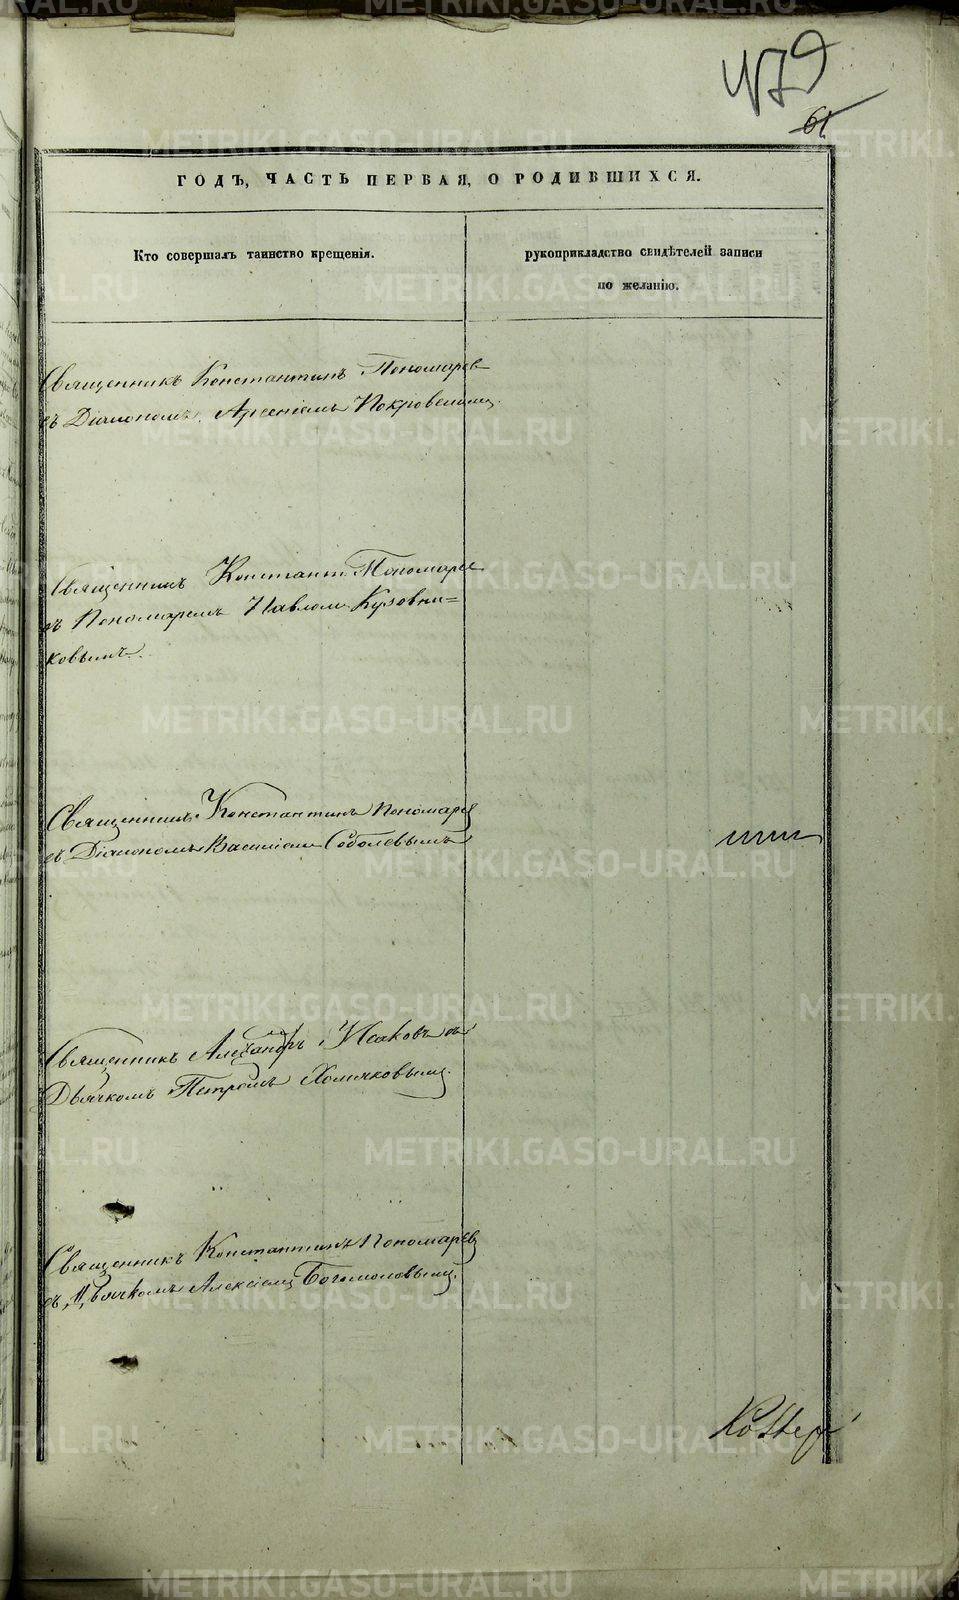 479
61
ГОДЪ, ЧАСТЬ ПЕРВАЯ, О РОДИВШИХСЯ.
Кто совершалъ таинство крещенія.
рукоприкладство свидѣтелей записи
по желанію.
Священникъ Константинъ Пономарев
съ Діакономъ Арсеніемъ Покровскимъ.
Священникъ Константинъ Пономарев
съ Пономаремъ Павломъ Кузовни=
ковымъ.
Священникъ Константинъ Пономарев
съ Діакономъ Василіемъ Соболевымъ
Священникъ Александръ Исаковъ съ
Дьячкомъ Петромъ Хомяковымъ.
Священникъ Константинъ Пономарев
съ Дьячкомъ Алексіемъ Богомоловымъ.
METRIKI.GASO-URAL.RU